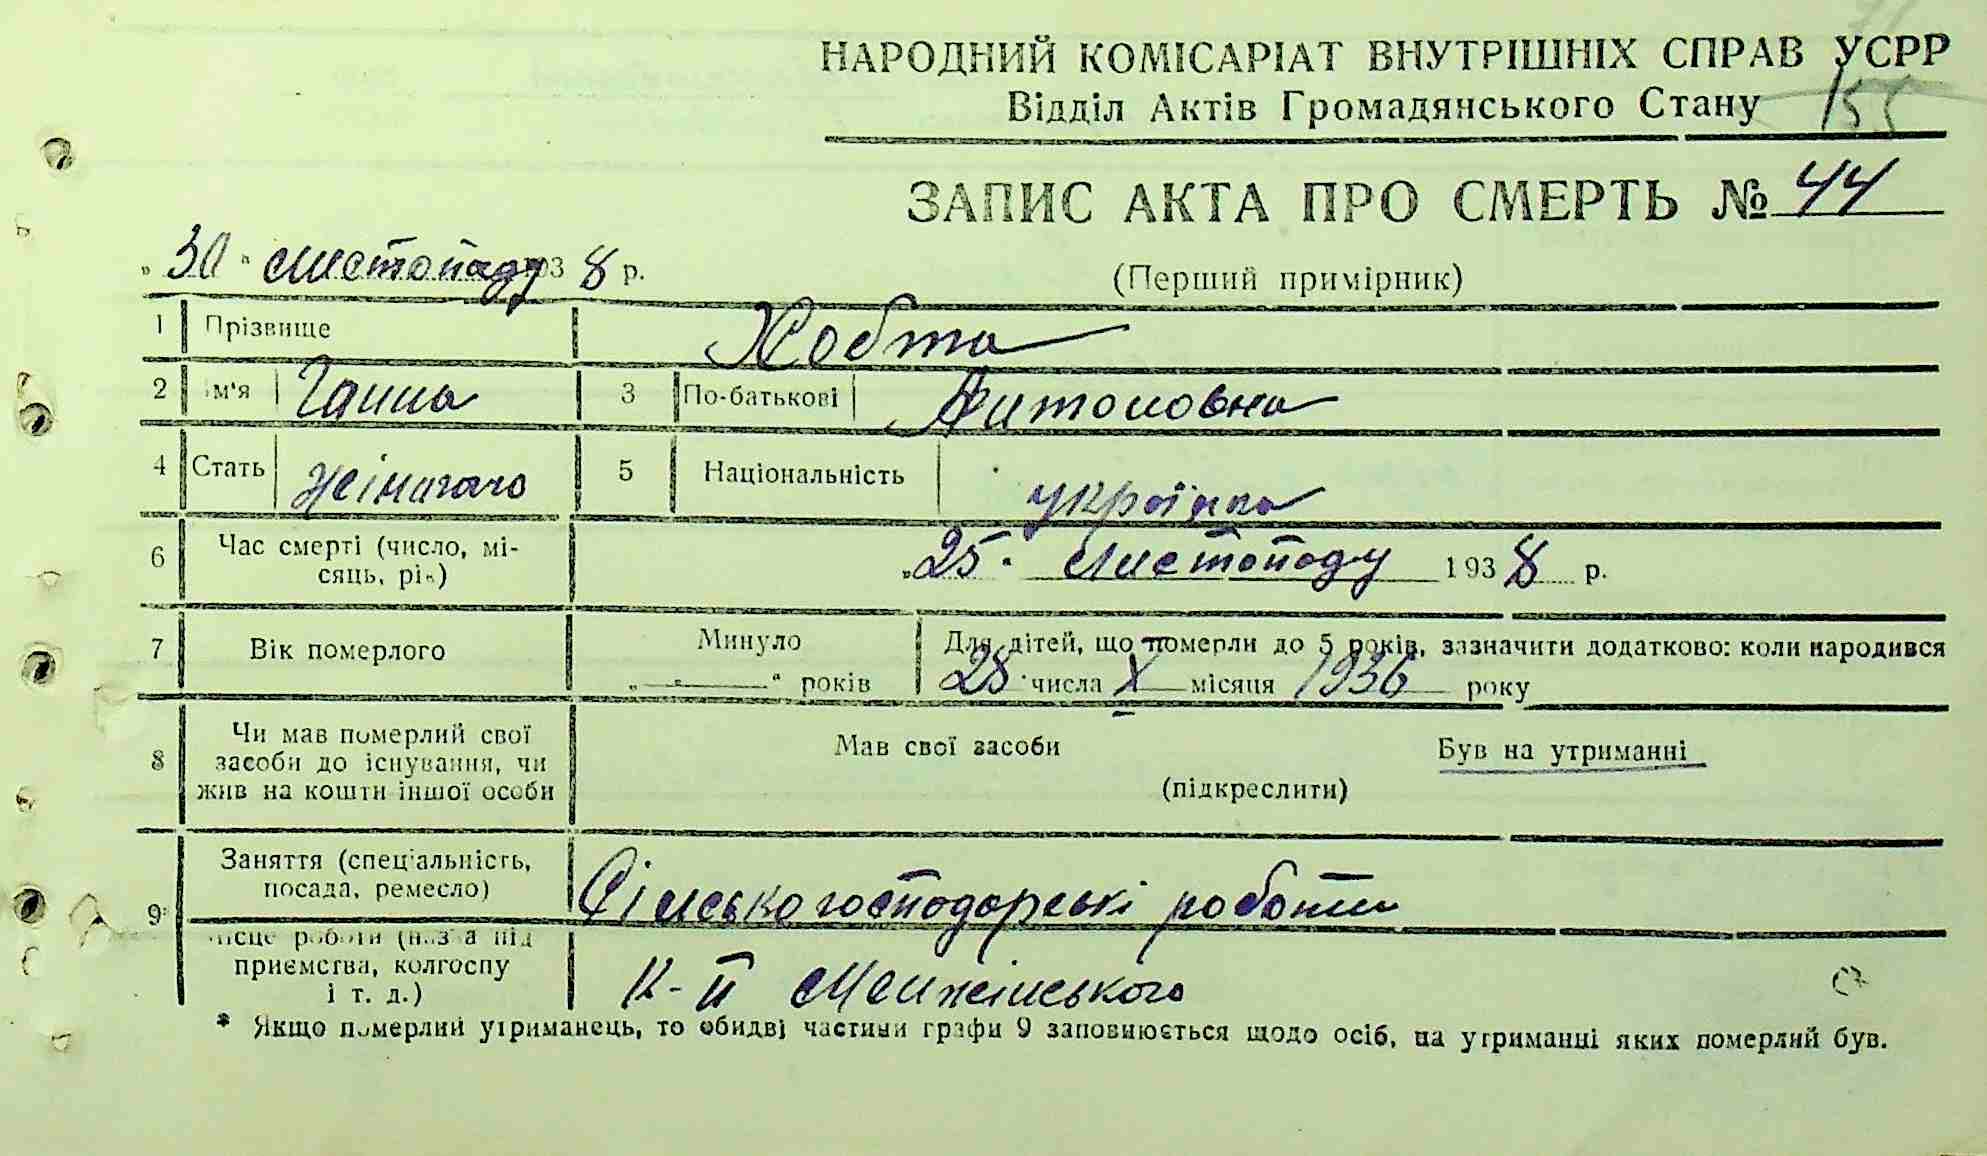 НАРОДНИЙ КОМІСАРІАТ ВНУТРІШНІХ СПРАВ УСРР
Відділ Актів Громадянського Стану 155
ЗАПИС АКТА ПРО СМЕРТЬ № 44
„30" листопаду 1938 р.
(Перший примірник)
1 Прізвище Хобта
2 Ім'я Ганна 3 По-батькові Антоновна
4 Стать жіночого 5 Національність українка
6 Час смерті (число, мі-
сяць, рік) „25" листопаду 1938 р.
7 Вік померлого Минуло „—" років
Для дітей, що померли до 5 років, зазначити додатково: коли народився
28 числа X місяця 1936 року
8 Чи мав померлий свої
засоби до існування, чи
жив на кошти іншої особи
Мав свої засоби Був на утриманні
(підкреслити)
9* Заняття (спеціальність,
посада, ремесло) Сільськогосподарські роботи
Місце роботи (назва під
приємства, колгоспу
і т. д.) К-п Менжінського
* Якщо померлий утриманець, то обидві частини графи 9 заповнюється щодо осіб, на утриманні яких померлий був.